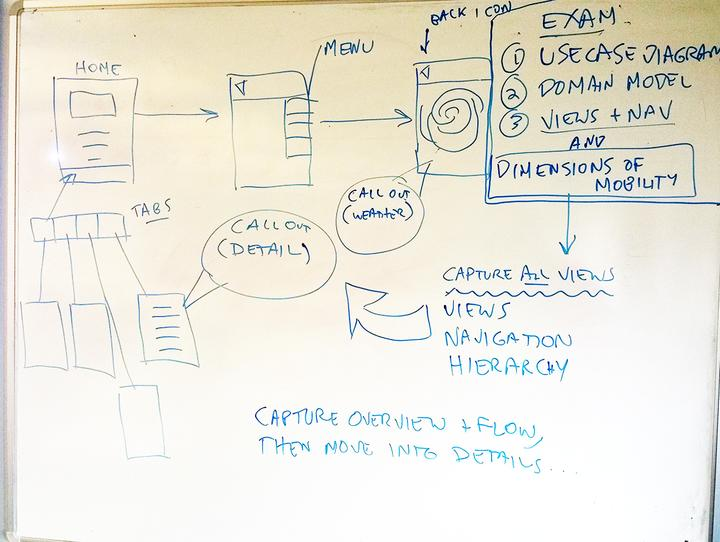 BACK ICON
EXAM
① USE CASE DIAGRAM
② DOMAIN MODEL
③ VIEWS + NAV
AND
DIMENSIONS OF
MOBILITY
MENU
HOME
TABS
CALL OUT
(DETAIL)
CALL OUT
(WEATHER)
CAPTURE ALL VIEWS
VIEWS
NAVIGATION
HIERARCHY
CAPTURE OVERVIEW + FLOW,
THEN MOVE INTO DETAILS...